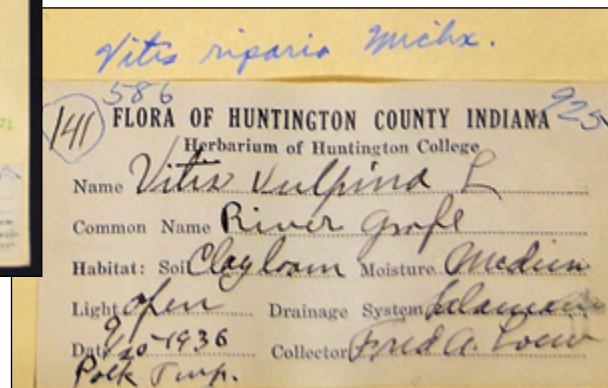 Vitis riparia Michx.
586
925
141
FLORA OF HUNTINGTON COUNTY INDIANA
Herbarium of Huntington College
Name Vitis Vulpina L
Common Name River Grape
Habitat: Soil Clay loam Moisture Medium
Light open Drainage System Salamonie
Date 9/20-1936 Collector Fred A. Loew
Polk Twp.